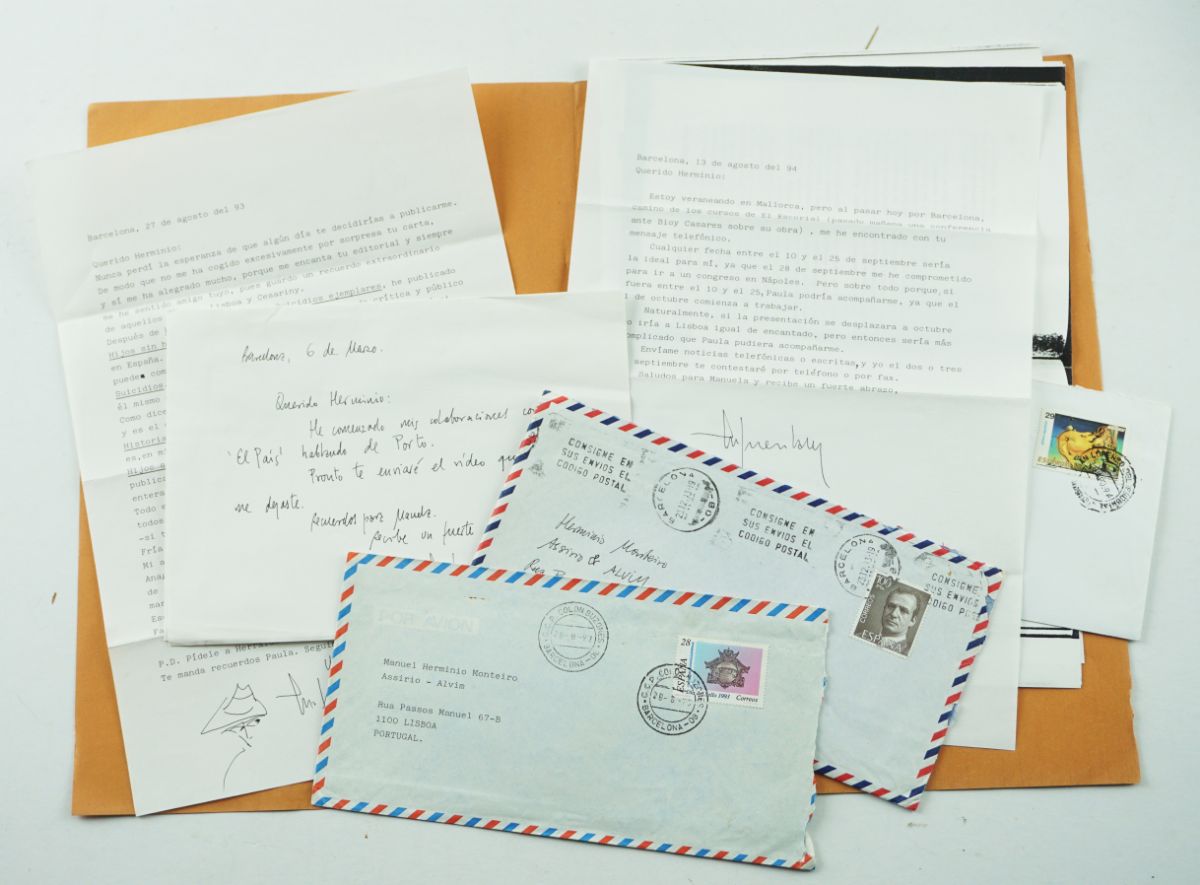 Barcelona, 27 de agosto del 93
Querido Herminio:
Nunca perdí la esperanza de que algún día te decidirías a publicarme.
De modo que no me ha cogido excesivamente por sorpresa tu carta,
y sí me ha alegrado mucho, porque me encanta tu editorial y siempre
me he sentido amigo tuyo, pues guardo un recuerdo extraordinario
de aquellos Lisboa y Cesariny.
Después de Suicidios ejemplares, he publicado
Hijos sin crítica y público
en España.
puede com
Suicidios
él mismo
Como dice
y es el
Historia
es, en mi
Hijos s
publica
entera
Todo e
todos
-si t
Fría
Mi a
Ana
de
mar
Es
Fa
P.D. Pídele a Herra
Te manda recuerdos Paula. Segui
Barcelona, 6 de Marzo.
Querido Herminio:
He comenzado mis colaboraciones co
'El País' hablando de Porto.
Pronto te enviaré el vídeo qu
me dejaste.
Recuerdos para Manuela.
Recibe un fuerte
Barcelona, 13 de agosto del 94
Querido Herminio:
Estoy veraneando en Mallorca, pero al pasar hoy por Barcelona,
camino de los cursos de El Escorial (pasado mañana una conferencia
ante Bioy Casares sobre su obra) , me he encontrado con tu
mensaje telefónico.
Cualquier fecha entre el 10 y el 25 de septiembre sería
la ideal para mí, ya que el 28 de septiembre me he comprometido
para ir a un congreso en Nápoles. Pero sobre todo porque, si
fuera entre el 10 y el 25, Paula podría acompañarme, ya que el
1 de octubre comienza a trabajar.
Naturalmente, si la presentación se desplazara a octubre
o iría a Lisboa igual de encantado, pero entonces sería más
omplicado que Paula pudiera acompañarme.
Envíame noticias telefónicas o escritas, y yo el dos o tres
septiembre te contestaré por teléfono o por fax.
Saludos para Manuela y recibe un fuerte abrazo,
29
ESPAÑA
CONSIGNE EN
SUS ENVIOS EL
CODIGO POSTAL
BARCELONA
CONSIGNE EN
SUS ENVIOS EL
CODIGO POSTAL
BARCELONA
CONSIGNE EN
SUS ENVIOS EL
CODIGO POST
Herminio Monteiro
Assirio & ALVIM
Rua P
CORREOS
ESPAÑA
POR AVION
C.C.P. COLON
BARCELONA
28
ESPAÑA
1993 Correos
C.C.P. COLON
BARCELONA
Manuel Herminio Monteiro
Assirio - Alvim
Rua Passos Manuel 67-B
1100 LISBOA
PORTUGAL.